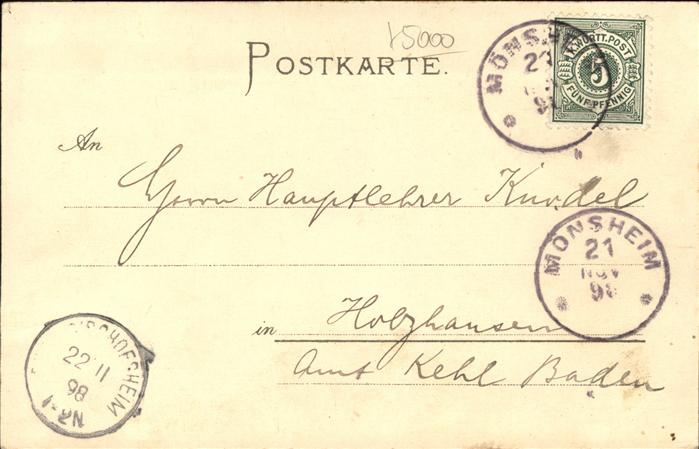 15000
POSTKARTE.
MÖNSHEIM
21
K. WÜRTT. POST
5
FÜNF PFENNIG
An
Herrn Hauptlehrer Knodel
MÖNSHEIM
21
NOV
98
in Holzhausen
Amt Kehl Baden
BISCHOFSHEIM
22 11
98